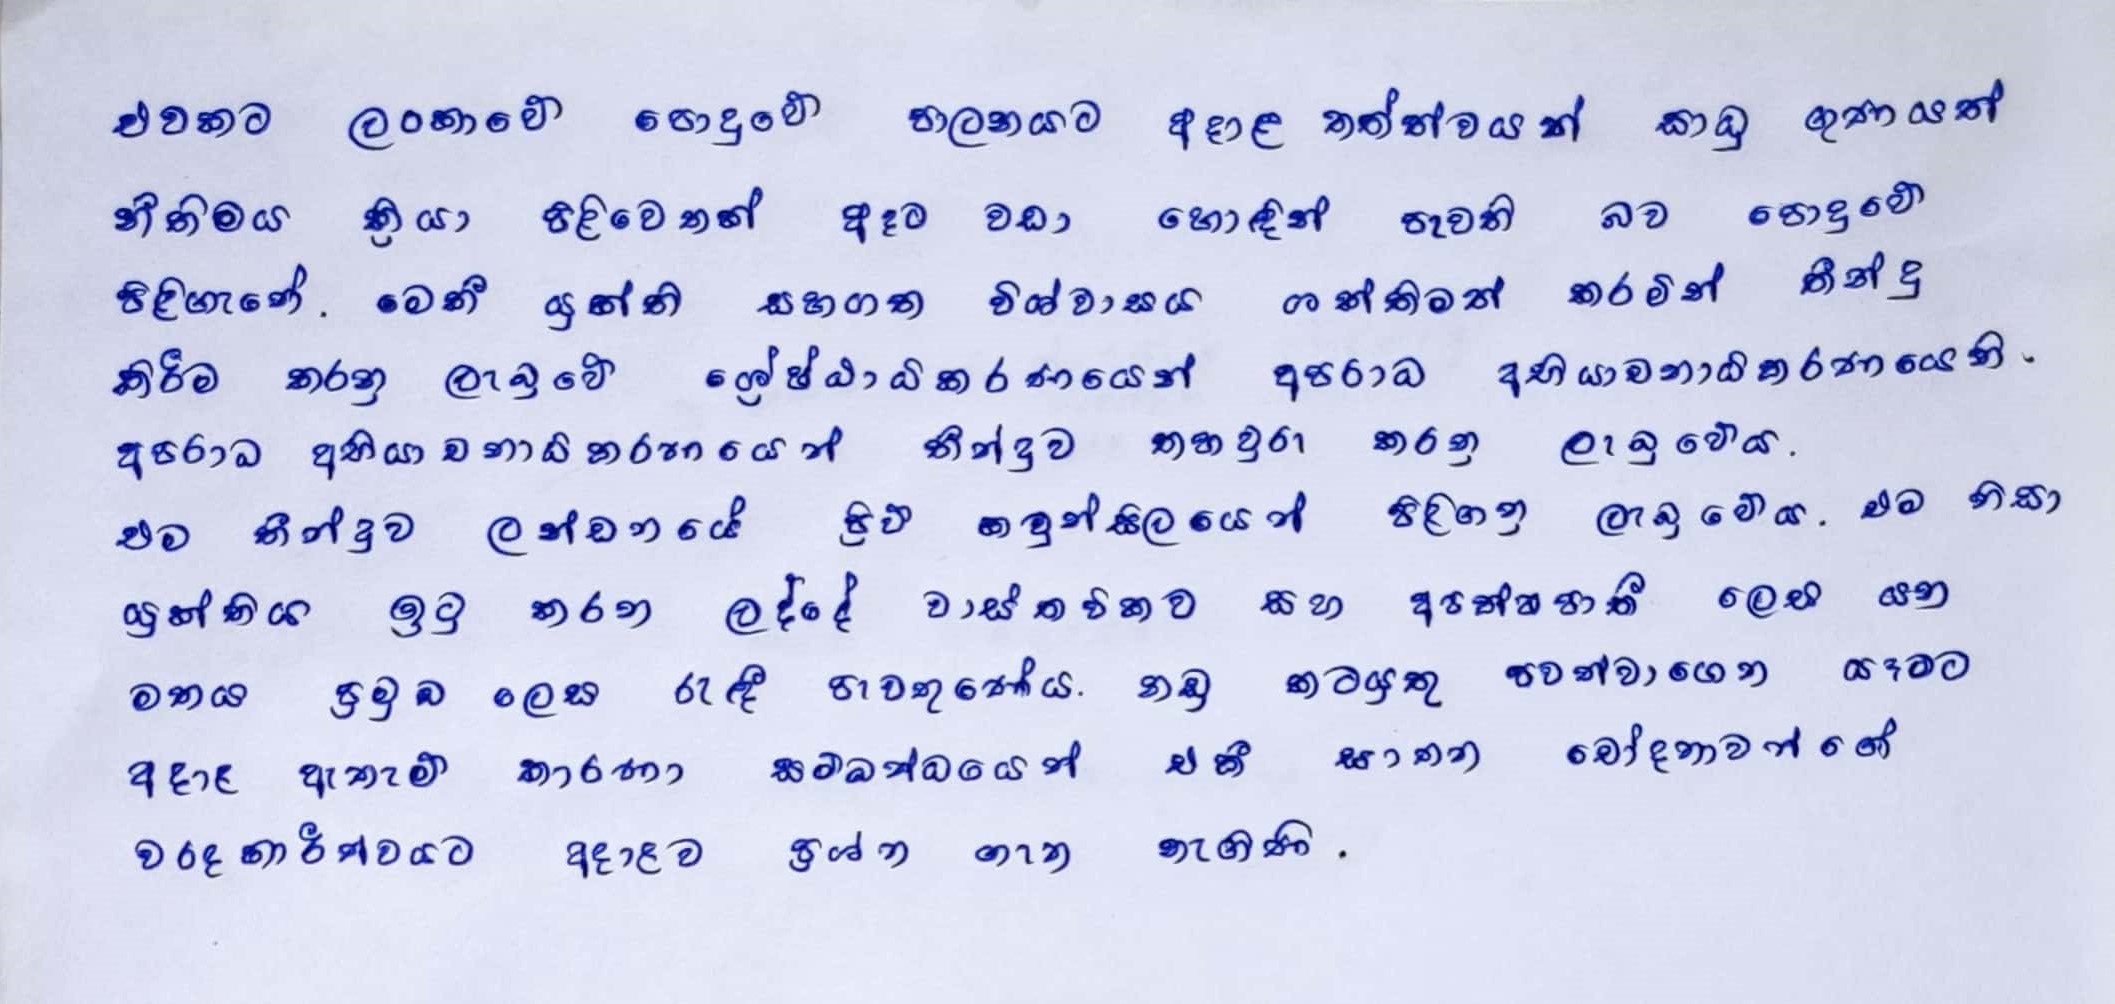 එවකට ලංකාවේ පොදුවේ පාලනයට අදාළ තත්ත්වයන් සාධු ගුණයත්
නීතිමය ක්‍රියා පිළිවෙතත් ඈට වඩා හොඳින් පැවති බව පොදුවේ
පිළිගැනේ. මෙකී යුක්ති සහගත විශ්වාසය ශක්තිමත් කරමින් තීන්දු
කිරීම කරනු ලැබුවේ ශ්‍රේෂ්ඨාධිකරණයෙන් අපරාධ අභියාචනාධිකරණයෙනි.
අපරාධ අභියාචනාධිකරණයෙන් තීන්දුව තහවුරු කරනු ලැබුවේය.
එම තීන්දුව ලන්ඩනයේ ප්‍රිවි කවුන්සිලයෙන් පිළිගනු ලැබුවේය. එම නිසා
යුක්තිය ඉටු කරන ලද්දේ වාස්තවිකව සහ අපක්ෂපාතී ලෙස යන
මතය ප්‍රමුඛ ලෙස රැඳී පැවතුණේය. නඩු කටයුතු පවත්වාගෙන යෑමට
අදාළ ඇතැම් කාරණා සම්බන්ධයෙන් එකී ඝාතන චෝදනාවන්ගේ
වරදකාරීත්වයට අදාළව ප්‍රශ්න ගැන නැගිණි.